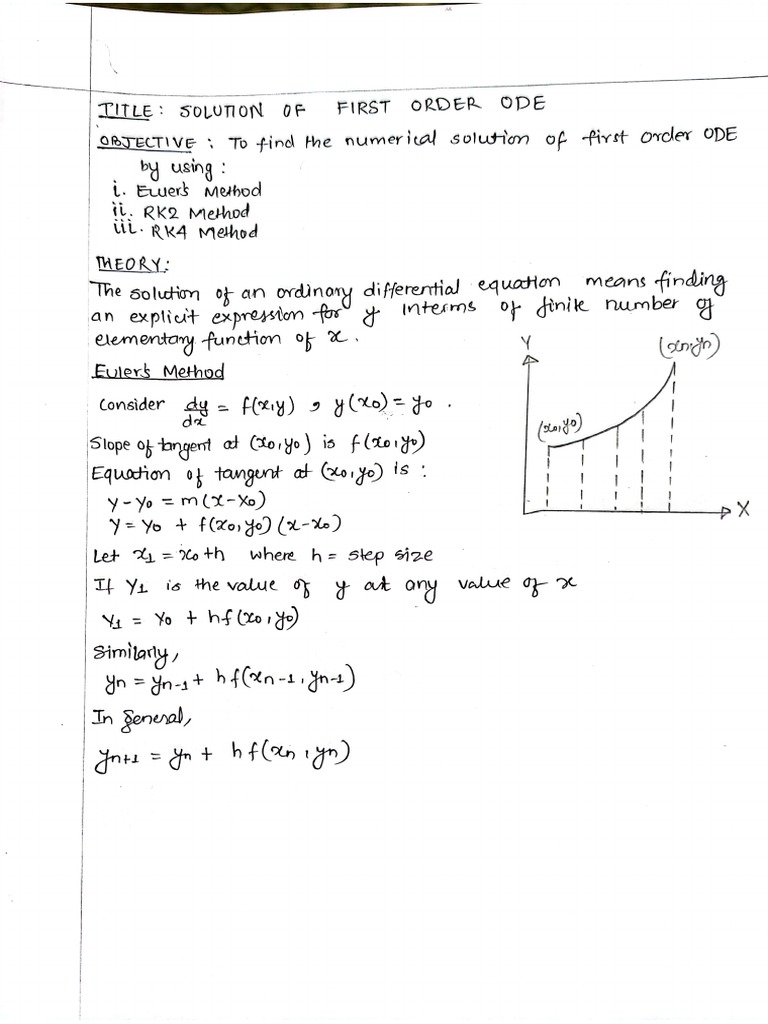 TITLE: SOLUTION OF FIRST ORDER ODE
OBJECTIVE: To find the numerical solution of first order ODE
by using:
i. Euler's Method
ii. RK2 Method
iii. RK4 Method
THEORY:
The solution of an ordinary differential equation means finding
an explicit expression for y interms of finite number of
elementary function of x.
Euler's Method
Consider dy/dx = f(x,y) , y(x0) = y0 .
Slope of tangent at (x0,y0) is f(x0,y0)
Equation of tangent at (x0,y0) is :
y-y0 = m(x-x0)
y = y0 + f(x0,y0)(x-x0)
Let x1 = x0+h where h = step size
If Y1 is the value of y at any value of x
Y1 = Y0 + hf(x0,y0)
Similarly,
yn = yn-1 + hf(xn-1,yn-1)
In general,
yn+1 = yn + hf(xn,yn)
Y
(xn,yn)
(x0,y0)
X